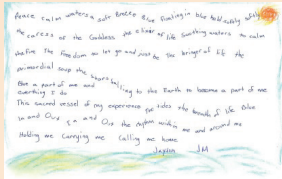 Peace calm waters a safe Breeze Blue floating in blue held safely safely
the caress of the Goddess the ginger of life Soothing waters to calm
the fire The freedom to let go and just be the bringer of life the
primordial soup the tears falling to the Earth to become a part of me
Blue a part of me and everything I do
This sacred vessel of my experience the tides the breath of life Blue
In and Out In and Out the rhythm within me and around me
Holding me Carrying me Calling me home
Jayden JM